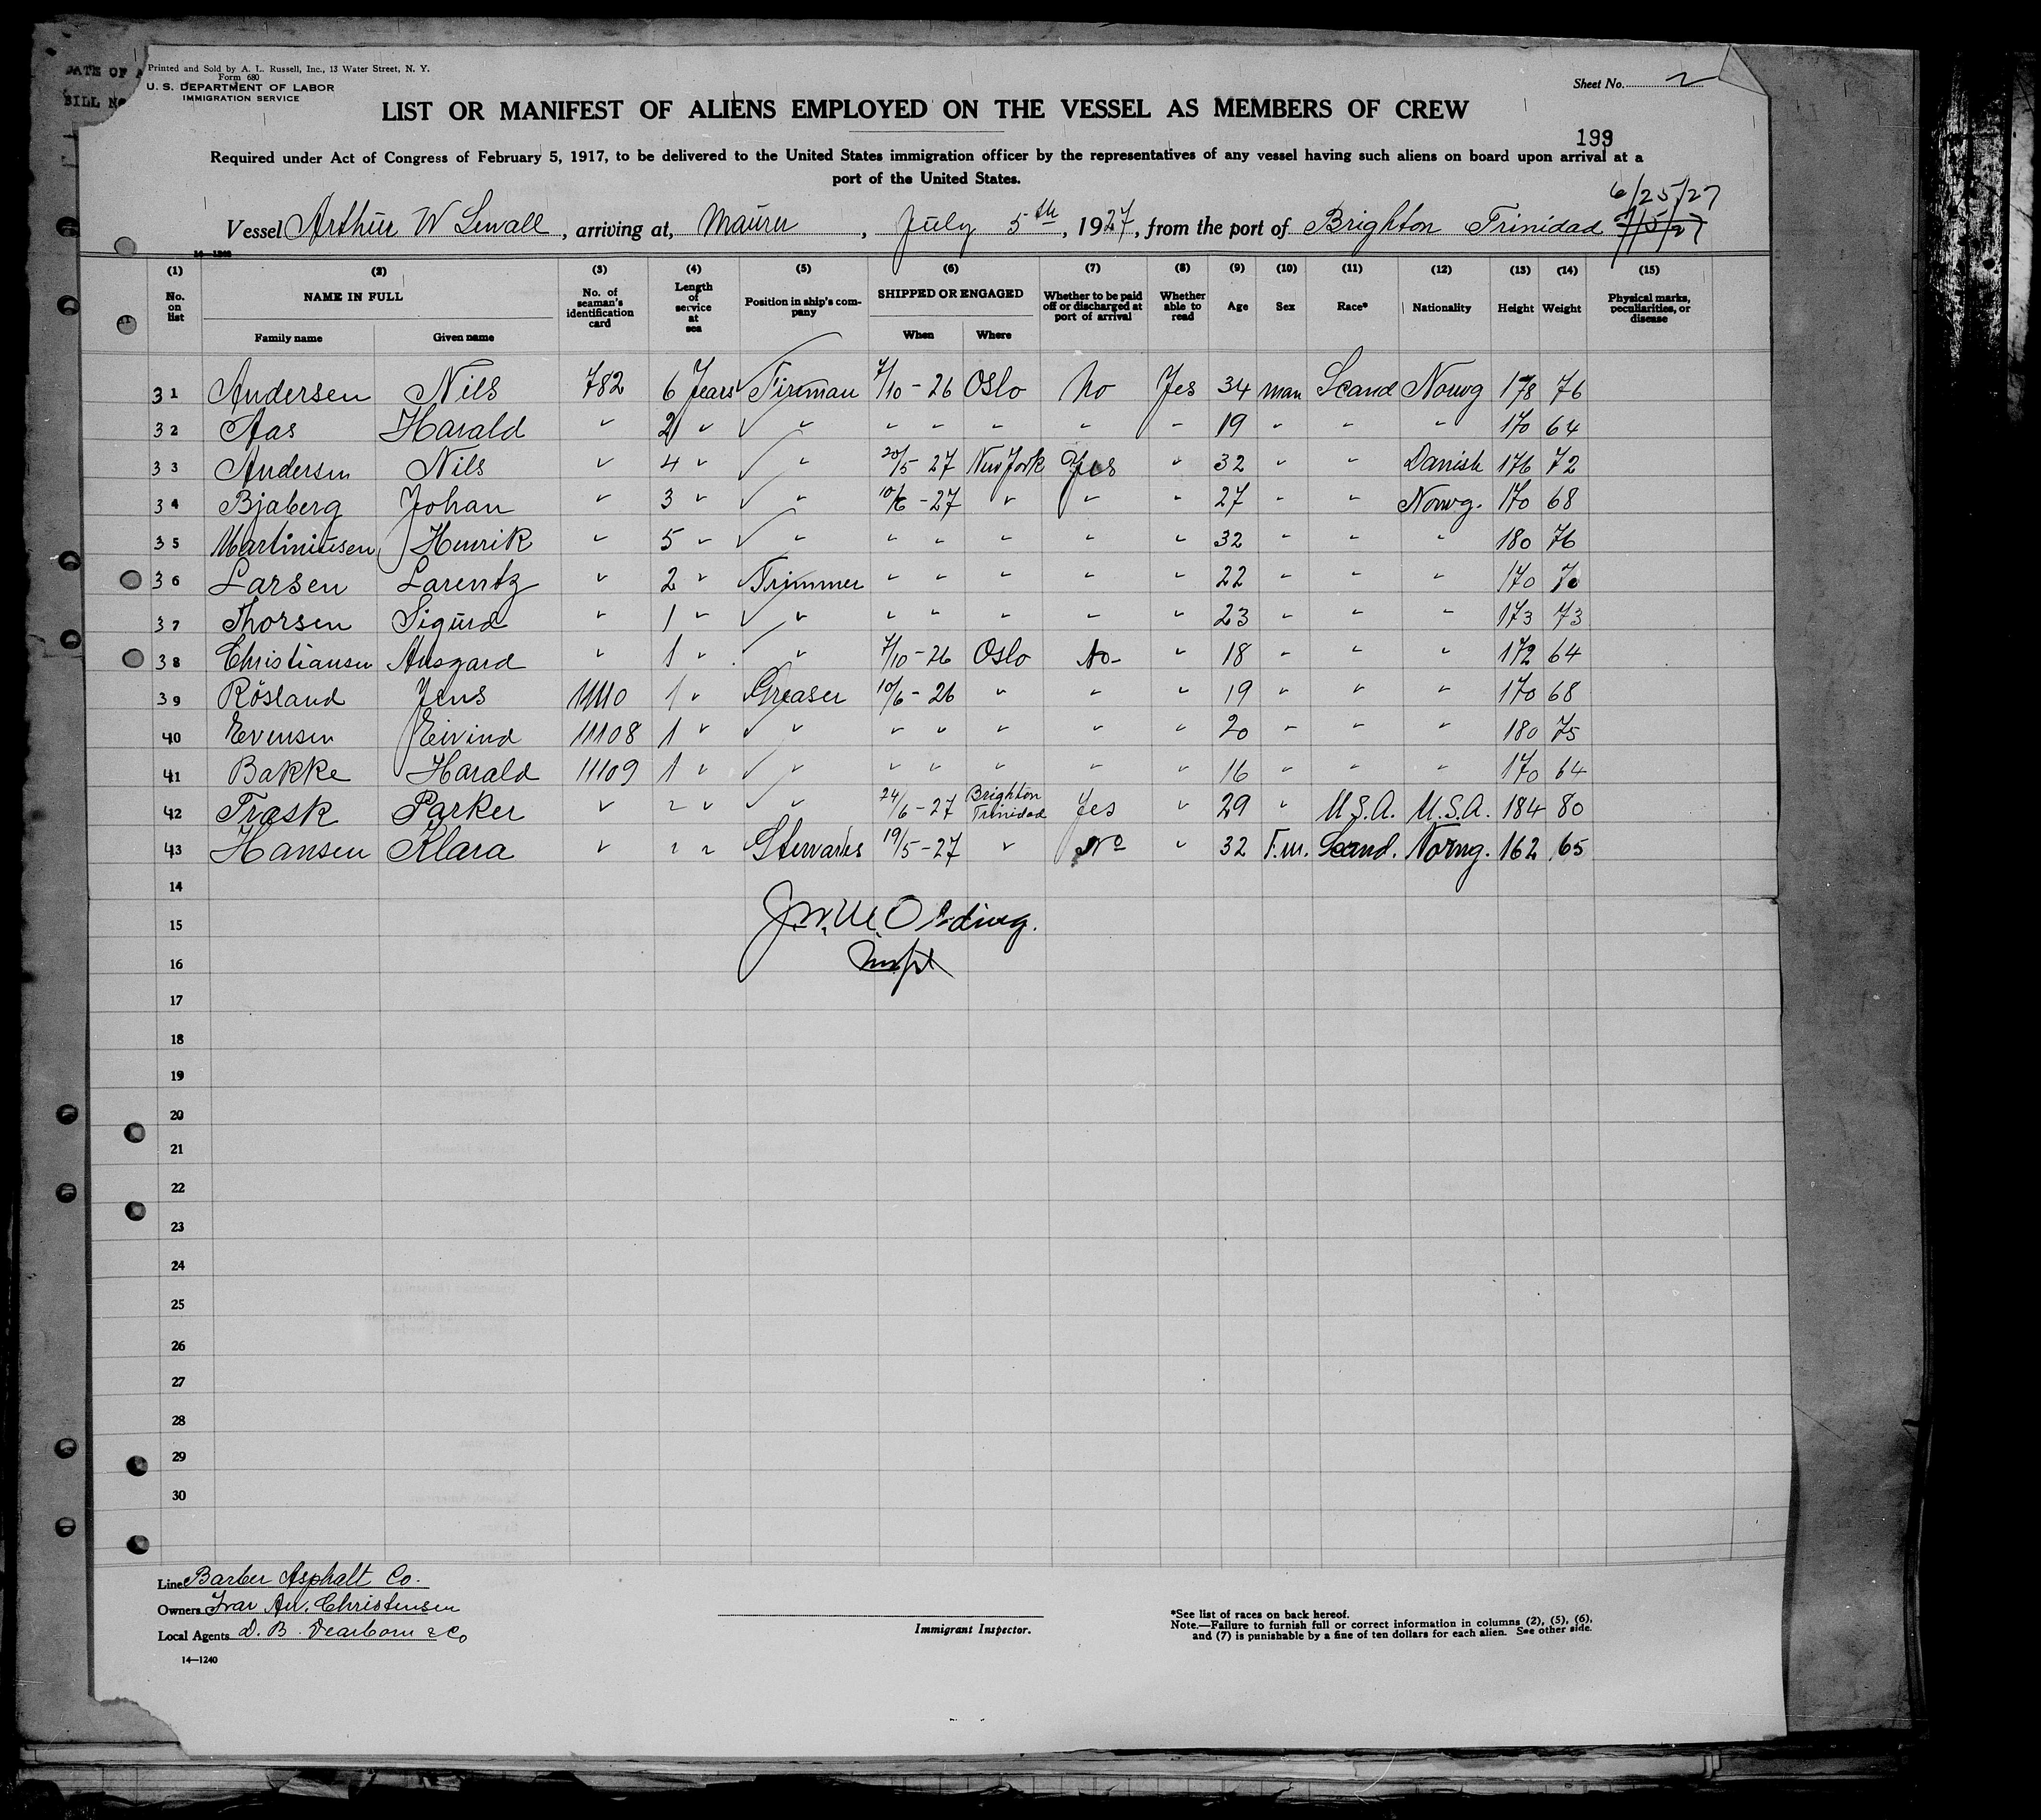 DATE OF A
BILL No
Printed and Sold by A. L. Russell, Inc., 13 Water Street, N. Y.
Form 680
U. S. DEPARTMENT OF LABOR
IMMIGRATION SERVICE
Sheet No. 2
LIST OR MANIFEST OF ALIENS EMPLOYED ON THE VESSEL AS MEMBERS OF CREW
199
Required under Act of Congress of February 5, 1917, to be delivered to the United States immigration officer by the representatives of any vessel having such aliens on board upon arrival at a
port of the United States.
6/25/27
Vessel Arthur W Sewall, arriving at, Maurer, July 5th, 1927, from the port of Brighton Trinidad 7/5/27
14-1240
(1) (2) (3) (4) (5) (6) (7) (8) (9) (10) (11) (12) (13) (14) (15)
No. on list NAME IN FULL Family name Given name No. of seaman's identification card Length of service at sea Position in ship's company SHIPPED OR ENGAGED When Where Whether to be paid off or discharged at port of arrival Whether able to read Age Sex Race* Nationality Height Weight Physical marks, peculiarities, or disease
31 Andersen Nils 782 6 Years Fireman 7/10 - 26 Oslo No Yes 34 man Scand Norwg 178 76
32 Aas Harald " 2 " " " " " " " 19 " " " 170 64
33 Andersen Nils " 4 " " 20/5 27 New York Yes " 32 " " Danish 176 72
34 Bjaberg Johan " 3 " " 10/6 - 27 " " " 27 " " Norwg. 170 68
35 Martiniusen Henrik " 5 " " " " " " " 32 " " " 180 76
36 Larsen Larentz " 2 " Trimmer " " " " " 22 " " " 170 70
37 Thorsen Sigurd " 1 " " " " " " " 23 " " " 173 73
38 Christiansen Ansgard " 1 " " 7/10 - 26 Oslo No - " 18 " " " 172 64
39 Rösland Jens 11110 1 " Greaser 10/6 - 26 " " " 19 " " " 170 68
40 Evensen Eivind 11108 1 " " " " " " " 20 " " " 180 75
41 Bakke Harald 11109 1 " " " " " " " 16 " " " 170 64
42 Trask Parker " " " " 24/6 - 27 Brighton Trinidad Yes " 29 " U.S.A. U.S.A. 184 80
43 Hansen Klara " " " 19/5 - 27 " No " 32 F.m. Scand. Norwg. 162 65
14
15
16
Inspt
17
18
19
20
21
22
23
24
25
26
27
28
29
30
Line Barber Asphalt Co.
Owners Ivar An. Christensen
Local Agents D. B. Dearborn & Co
Immigrant Inspector.
*See list of races on back hereof.
Note.—Failure to furnish full or correct information in columns (2), (5), (6),
and (7) is punishable by a fine of ten dollars for each alien. See other side.
14—1240